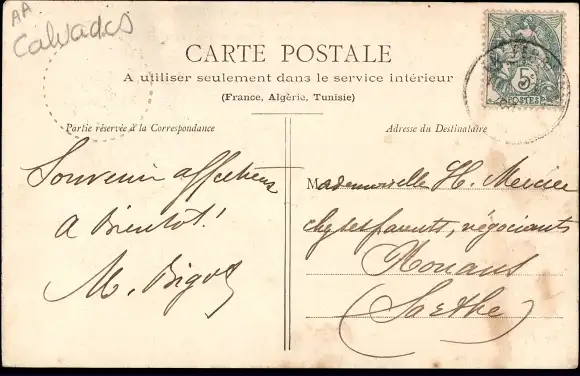 AA
Calvados
CARTE POSTALE
A utiliser seulement dans le service intérieur
(France, Algérie, Tunisie)
Partie réservée à la Correspondance
Adresse du Destinataire
5c
POSTES
Souvenir affectueux
A Bientôt!
M. Bigot
Mademoiselle H. Mercier
chez ses parents, négociants
Nouans
(Sarthe)